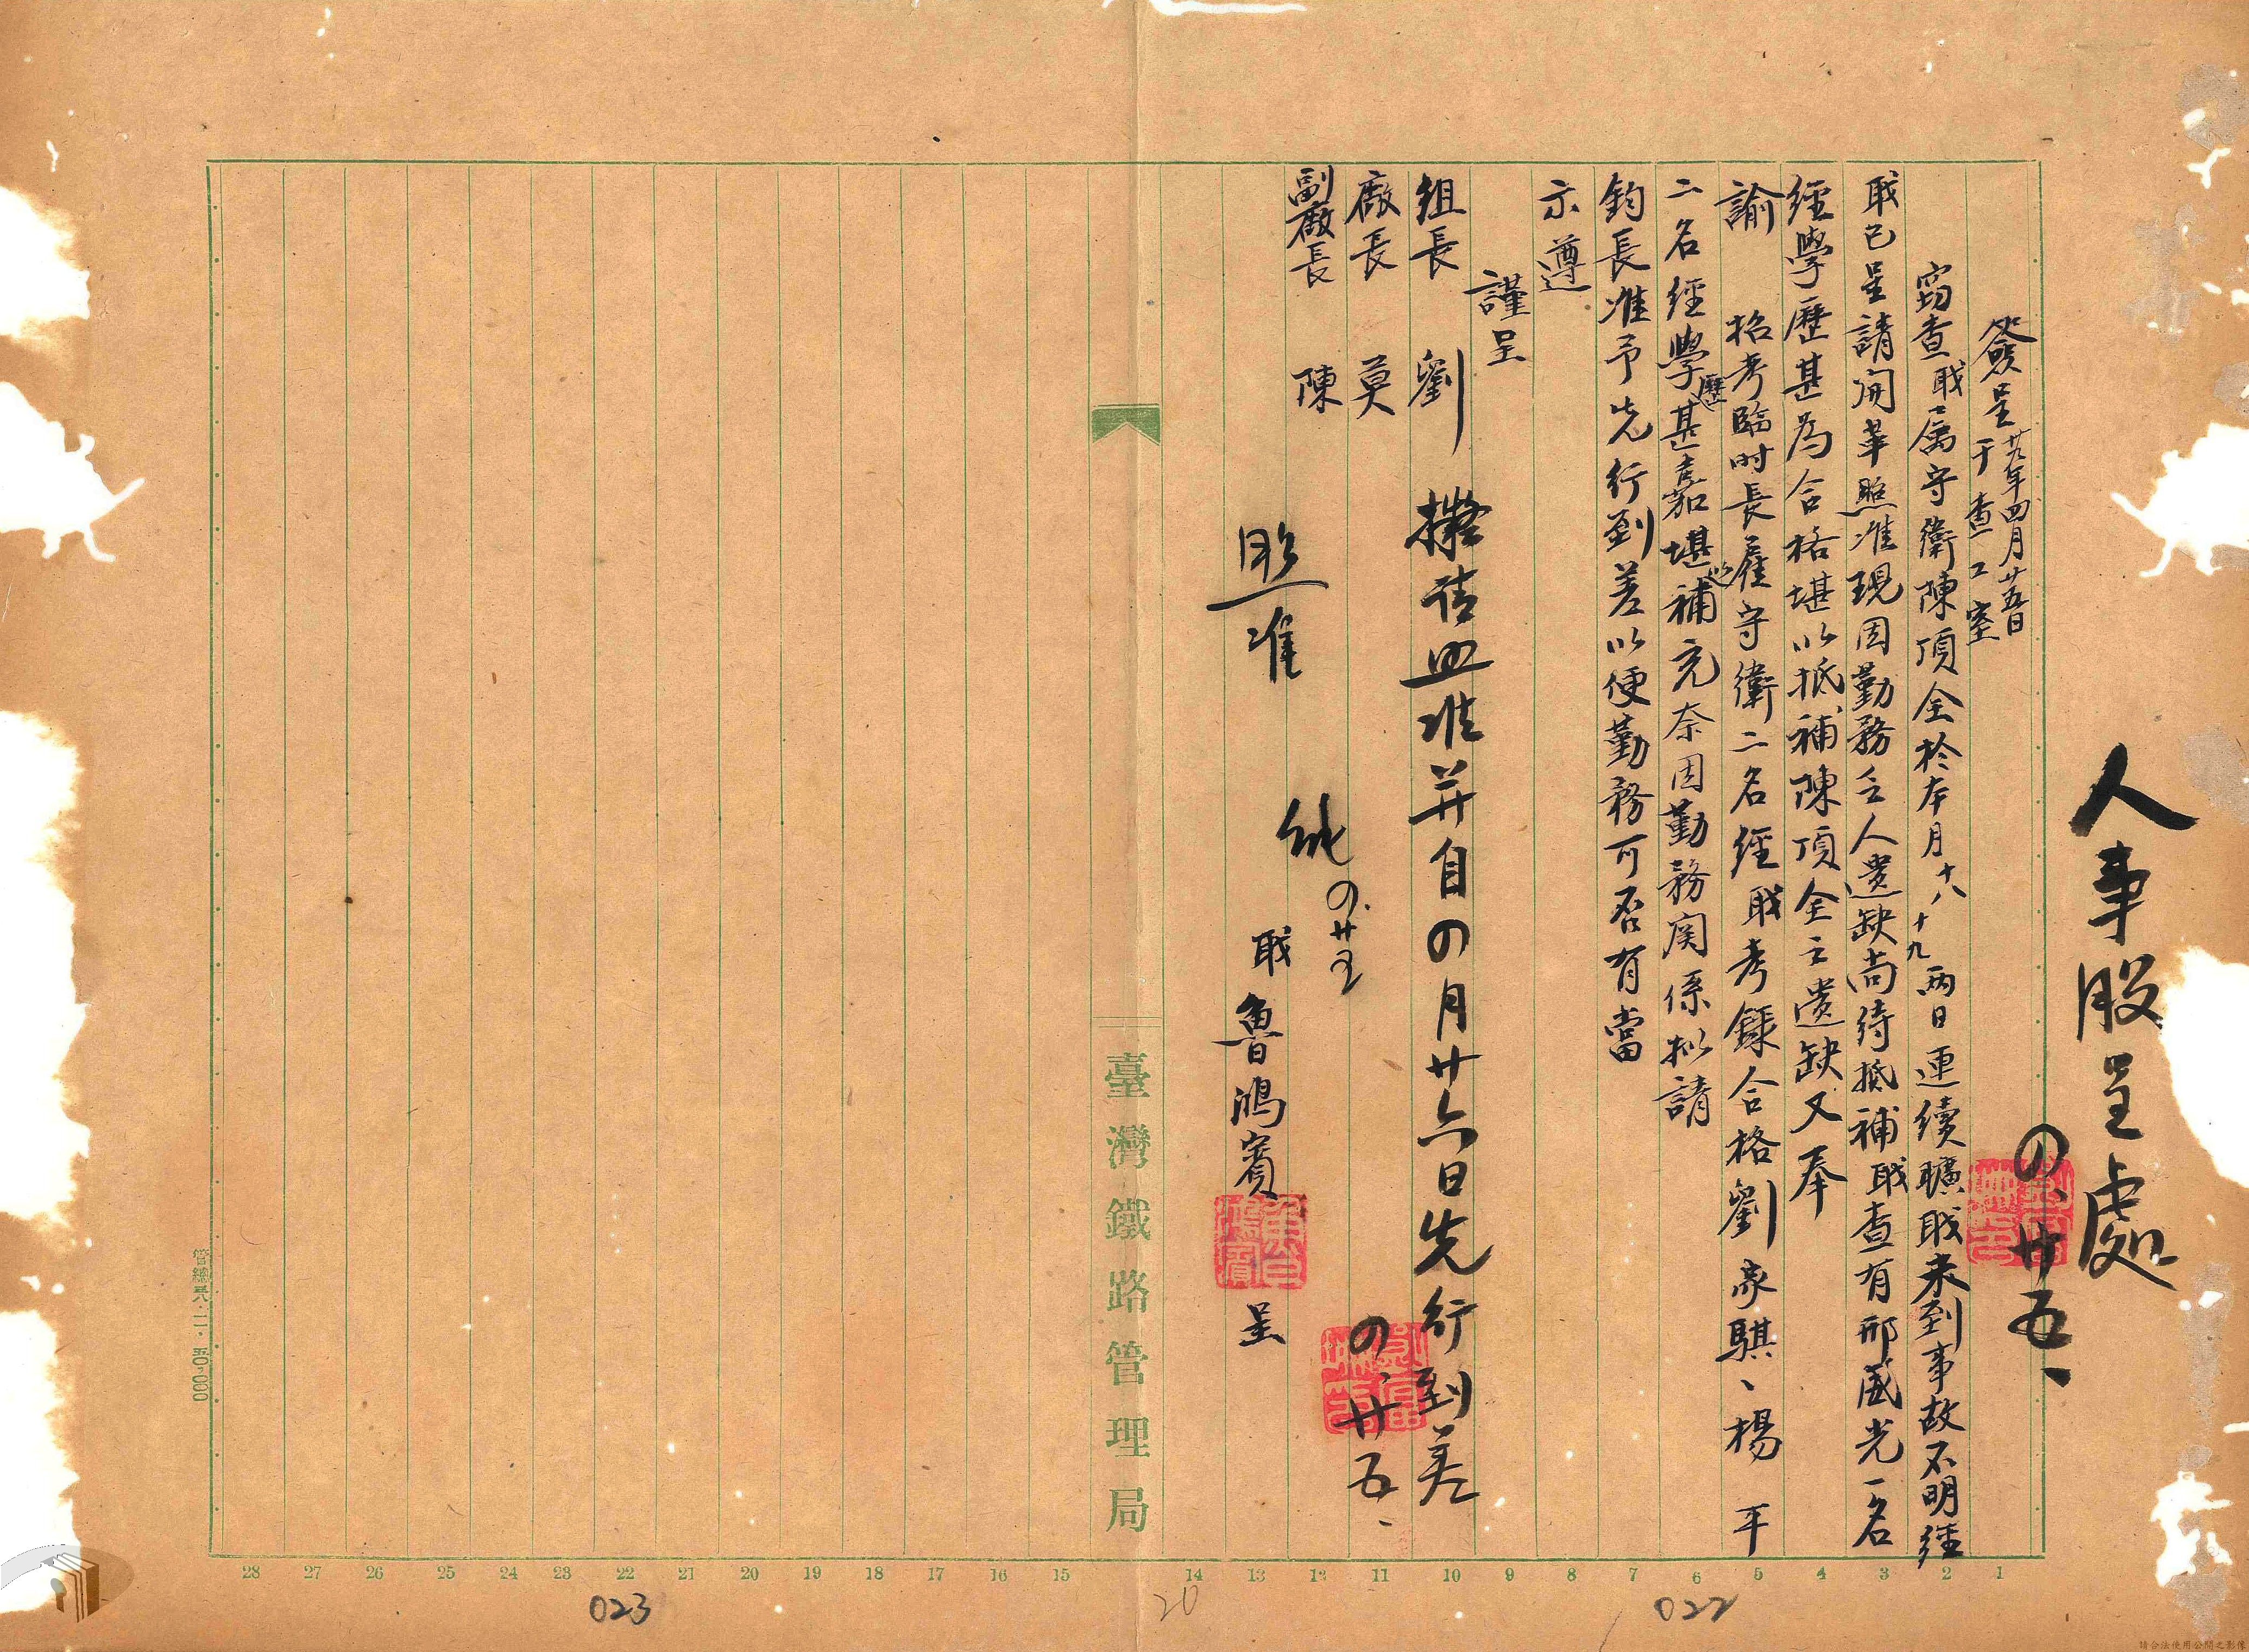 人事股呈處
四、廿五、
簽呈 卅九年四月廿五日
于查工室
竊查職屬守衛陳頂全於本月十八、十九兩日連續曠職未到事故不明經
職已呈請開革照准現因勤務乏人遺缺尚待抵補職查有邢國光一名
經學歷甚為合格堪以抵補陳頂全之遺缺又奉
諭 招考臨時長雇守衛二名經職考錄合格劉家騏、楊平
二名經學歷甚嘉堪以補充奈因勤務関係拟請
鈞長准予先行到差以便勤務可否有當
示遵
謹呈
組長 劉
廠長 莫
副廠長 陳
擬請照准并自四月廿六日先行到差
四、廿五、
照准
純 四.廿五
職 魯鴻賓 呈
魯鴻賓
臺灣鐵路管理局
1 2 3 4 5 6 7 8 9 10 11 12 13 14 15 16 17 18 19 20 21 22 23 24 25 26 27 28
022
20
023
請合法使用公開之影像